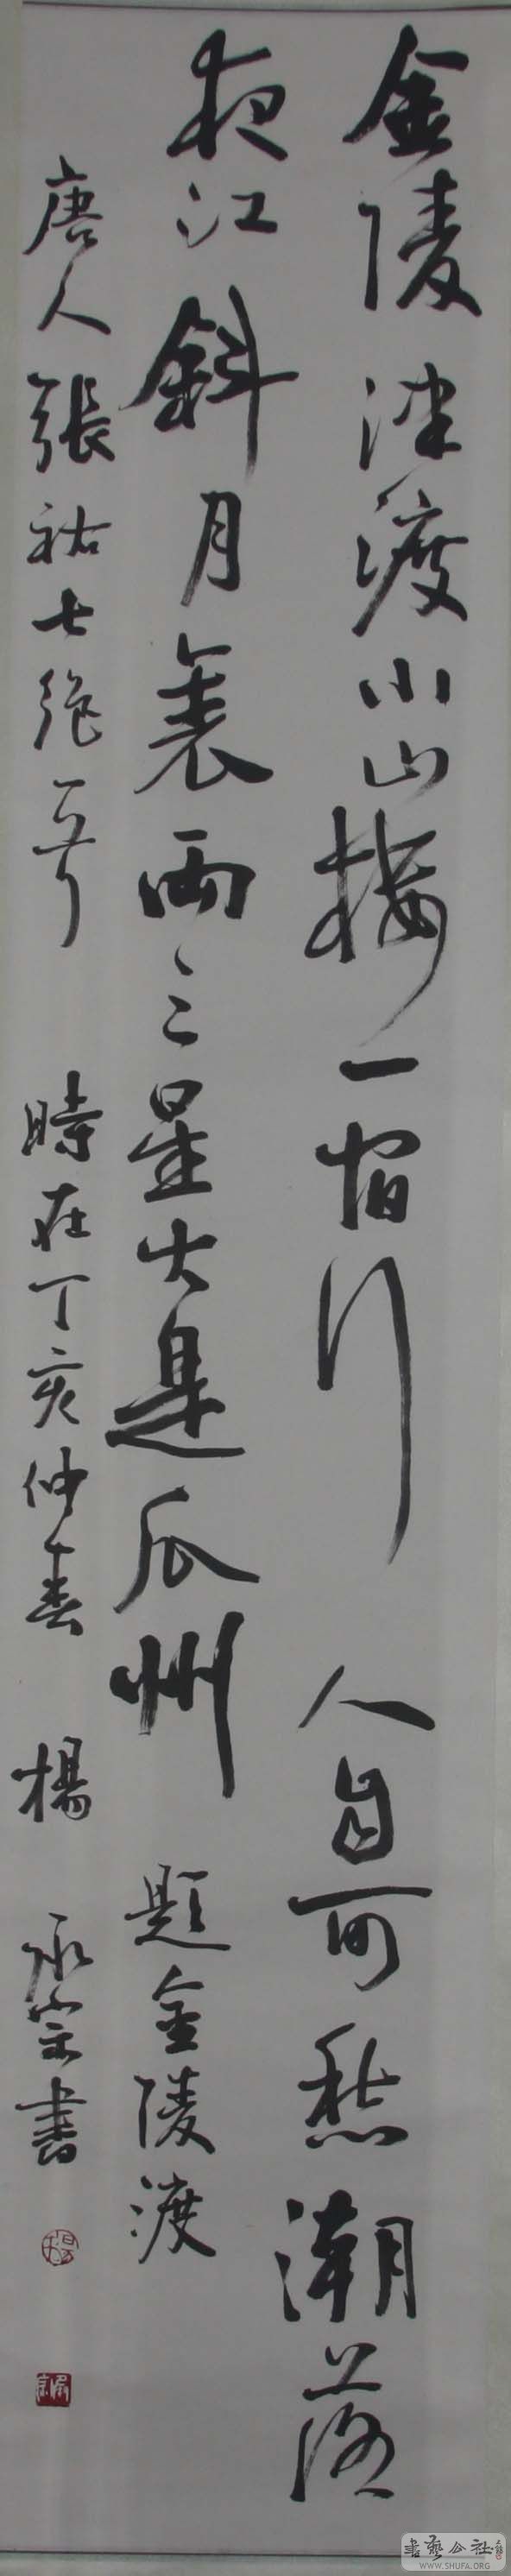 金陵津渡小山楼一宿行人自可愁潮落
夜江斜月裏两三星火是瓜州
题金陵渡
唐人張祜七绝一首
時在丁亥仲春
楊永宗書
書藝公社
WWW.SHUFA.ORG